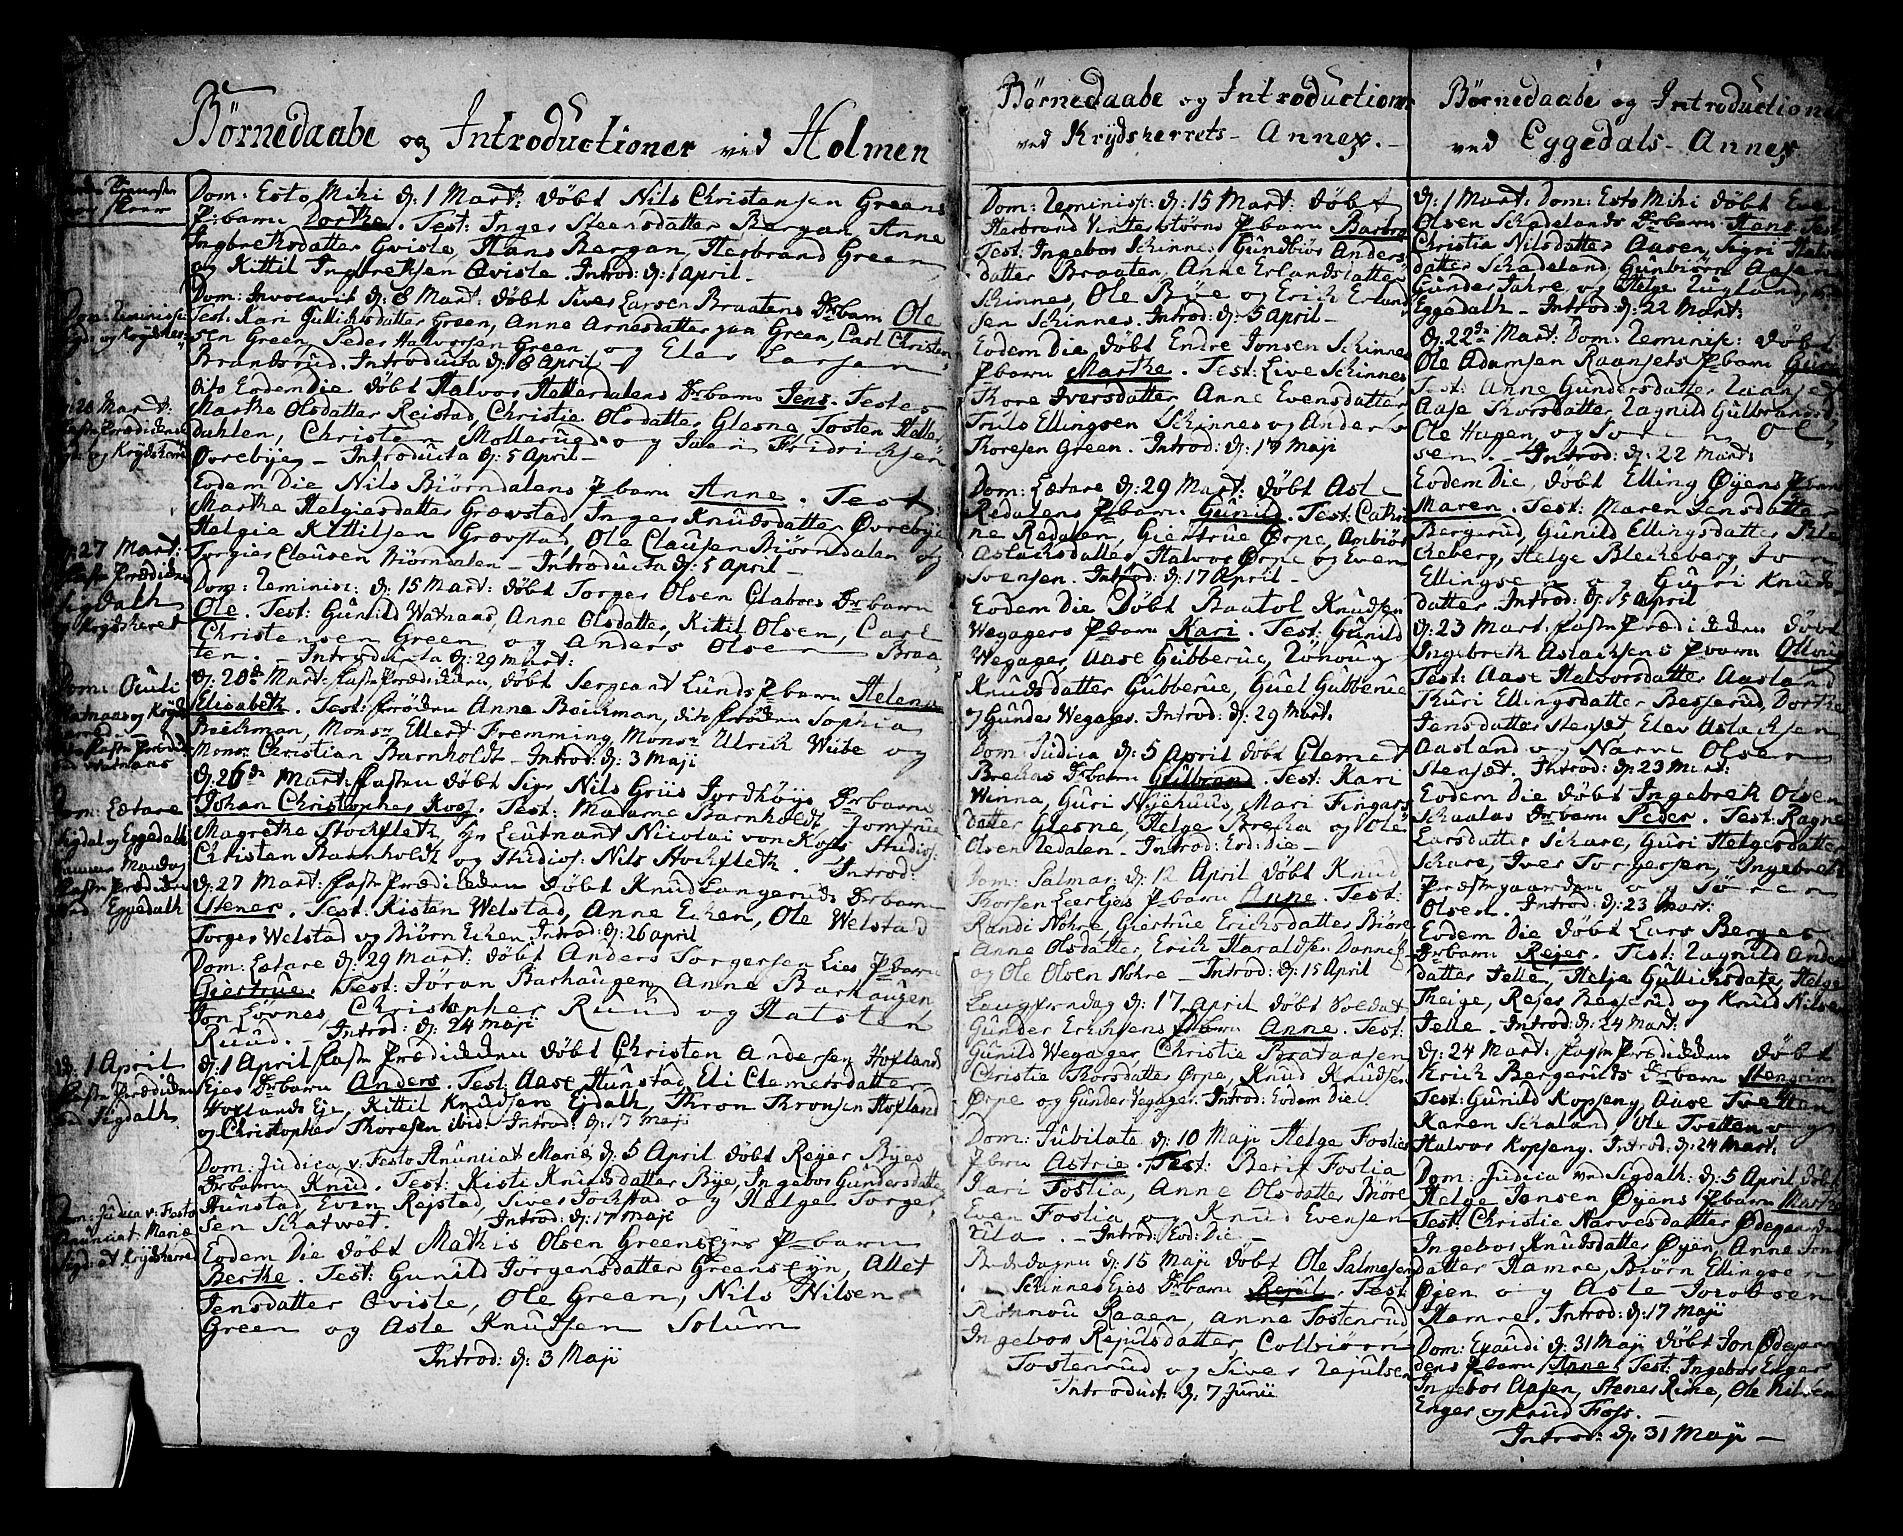 Börnedaabe og Introductioner ved Holmen
Dom: Esto Mihi d: 1 Mart: döbt Nils Christensen Greens
P:barn Dorthe. Test: Inger Steensdatter Bergan, Anne
Ingbrethsdatter Qviste, Hans Bergan, Herbrand Green
og Kittil Ingbrethsen Qviste. Introd: d: 1 April
Dom: Invocavit d: 8 Mart: döbt Siver Larsen Braatens Dr:barn Ole
Test: Kari Gullichsdatter Green, Anne Arnesdatter paa Green, Carl Christen
sen Green, Peder Halvorsen Green og Elev Larsen
Brandsrud. Introducta d: 8 April
Dito Eodem Die. döbt Halvor Hetterdalens Dr:barn Jens. Testes
Marthe Olsdatter Reistad, Christie Olsdatter Glesne, Tosten Hetter
dahlen, Christe Mollerud og Iver Fridrichsen
Ovrebÿe. Introducta d: 5 April
Eodem Die Nils Biörndalens P:barn Anne. Test
Marthe Helgiesdatter Grovstad, Inger Knudsdatter Øvrebÿe
Helgie Kittilsen Grovstad, Ole Clausen Biörndalen og
Torgier Clausen Biörndalen. Introducta d: 5 April
Dom: Reminisc: d: 15 Mart: döbt Torger Olsen Glaboes Dr:barn
Ole. Test: Gunild Watnaas, Anne Olsdatter, Kittil Olsen, Carl
Christensen Green og Anders Olsen Braa
ten. Introducta d: 29 Mart:
d: 20de Mart: Faste Prædikken, döbt Sergeant Lunds P:barn Helene
Elisabeth. Test: Frøken Anne Beichman, dito Frøken Sophia
Beichman, Monsr Ellert Fremming, Monsr Ulrich Wiibe og
Monsr Christian Barnholdt. Introd: d: 3 Maji
d: 26de Mart: Faste döbt Sigr Nils Griis Jordhöÿs Dr:barn
Johan Christopher Koss. Test: Madame Barnholdt, Jomfrue
Magrethe Stochfleth, Hr Leutnant Nicolai von Koss Studios:
Christen Barnholdt og Studios: Nils Stochfleth. Introd:
d: 27 Mart: Faste Prædikken döbt Knud Langeruds Dr:barn
Stener. Test: Kisten Welstad, Anne Ecken, Ole Welstad
Torger Welstad og Biörn Ecken. Introd: d: 26 April
Dom: Lætare d: 29 Mart: döbt Anders Torgersen Eies P:barn
Giertrue. Test: Jöran Barhaugen, Anne Barhaugen
Jon Lövnes, Christopher Ruud og Halsten
Ruud. Introd: d: 24 Maji
d: 1 April Faste Prædikken döbt Christen Andersen Hoxland
Ejes Dr:barn Anders. Test: Aase Hunstad, Eli Clemetsdatter
Hoxlands Eje, Kittil Knudsen Ejdalh, Thron Thronsen Hoxland
og Christopher Thoresen ibid: Introd: d: 17 Maji
Dom: Judica v: Festo Anunciat Mariæ d: 5 April döbt Rejer Bÿes
Dr:barn Knud. Test: Kisti Knudsdatter Bÿe, Ingebor Gundersdatter
Hunstad, Even Rejstad, Siver Jochstad og Helge Torge
sen Schatvet. Introd: d: 17 Maji
Eodem Die döbt Mathis Olsen Greens P:barn
Berthe. Test: Gunild Jorgensdatter Greensein, Allet
Jensdatter Qviste, Ole Green, Nils Nilsen
Green og Asle Knudsen Solum
Introd: d: 3 Maji
Dom: Reminisc:
d: 20 Mart:
d: 27 Mart:
Faste Prædiken
Sigdalh
og Krydsheret
Dom: Oculi
Dom: Lætare
Sigdal og Eggedalh
ved Eggedalh
d: 1 April
Faste Prædiken
ved Sigdalh
Dom: Judica v: Festo
Anunciat: Mariæ
Sigd: at Krydsherre
Börnedaabe og Introductioner
ved Krÿdsherrets Annex.
Dom: Reminisc: d: 15 Mart: döbt
Herbrand Vinterstörns P:barn Barbro
Test: Ingebor Schinnes, Gundbiör Anders
datter Braaten, Anne Erlandsdatter
Schinnes, Ole Büe og Erich Erland
sen Schinnes. Introd: d: 5 April
Eodem Die döbt Endre Jonsen Schinnes
P:barn Marthe. Test: Live Schinnes
Thore Iversdatter, Anne Evensdatter
Truls Ellingsen Schinnes og Anders
Thoresen Green. Introd: d: 17 Maji
Dom: Lætare d: 29 Mart: döbt Asle
Redalens P:barn Gunild. Test: Cathri
ne Redalen, Giertrue Ørpe, Anbiör
Aslachsdatter, Halvor Ørpe og Even
Svensen. Introd: d: 17 April
Eodem Die döbt Baatol Knudsen
Wegagers P:barn Kari. Test: Gunild
Wegager, Aase Gubberue, Rönoug
Knudsdatter Gubberue, Guel Gubberue
og Gunder Wegager. Introd: d: 29 Mart.
Dom: Judica d: 5 April döbt Clemet
Brechas Dr:barn Gulbrand. Test: Kari
Winna, Guri Nÿehuus, Mari Fingars
datter Glesne, Helge Brecha og Ole
Olsen Redalen. Introd: Eod: Die
Dom: Palmar: d: 12 April döbt Knud
Thorsen Leer Ejes P:barn Anne. Test:
Randi Nöhre, Giertrue Erichsdatter Biöre
Anne Olsdatter, Erich Haraldsen
og Ole Olsen Nöhre. Introd: d: 15 April
Langfredag d: 17 April döbt Soldat
Gunder Erichsens P:barn Anne. Test:
Gunild Wegager, Christie Brataasen
Christie Thorsdatter Ørpe, Knud Knudsen
Ørpe og Gunder Vegager. Introd: Eodem Die
Dom: Jubilate d: 10 Maji Helge Foslies
P:barn Astrie. Test: Berit Foslia
Kari Foslia, Anne Olsdatter Biöre
Even Foslia og Knud Evensen
Rula. Introd: Eod: Die
Bededagen d: 15 Maji döbt Ole Palmesen
Schinnes Ejes Dr:barn Rejul. Test
Rönnou Raaen, Anne Tostenrud
Ingebor Rejulsdatter, Colbiörn
Tostenrud og Siver Rejulsen
Introduct: d: 7 Junii
Börnedaabe og Introductioner
ved Eggedals Annex
d: 1 Mart: Dom: Esto Mihi döbt Even
Olsen Schadelands Dr:barn Hans. Test
Christie Nilsdatter Aasen, Sigri Halvors
datter Schadeland, Gunbiörn Aasen
Gunder Jahre og Helge Rugland,
Eggedalh. Introd: d: 22 Mart:
d: 22de Mart: Dom: Reminisc: döbt
Ole Adamsen Raansets P:barn Guri
Test: Anne Gundersdatter Raanset
Aase Thorsdatter, Ragnild Gulbransd:
Ole Hagen, og Soren Ol
sen. Introd: d: 22 Mart:
Eodem Die, döbt Elling Øÿens P:barn
Maren. Test: Maren Jensdatter
Bergerud, Gunild Ellingsdatter Ble
cheberg, Helge Blecheberg, Jon
Ellingsen og Guri Knuds
datter. Introd: d: 5 April
d: 23 Mart. Faste Prædikken döbt
Ingebreth Aslachsens P:barn Olloug
Test: Aase Halvorsdatter Aasland
Thuri Ellingsdatter Besserud, Dorthe
Jensdatter Stenset, Elev Aslachsen
Aasland og Narve Olsen
Stenset. Introd: d: 23 Mart:
Eodem Die döbt Ingebreth Olsen
Schaalas Dr:barn Peder. Test: Ragne
Larsdatter Schare, Guri Helgesdatter
Schare, Iver Torgersen, Ingebreth
Præstegaarden og Sören
Olsen. Introd: d: 23 Mart:
Eodem Die döbt Lars Berges
Dr:barn Rejer. Test: Ragnild Anders
datter Telle, Helje Gullichsdatter, Helge
Theige, Rejer Beglerud og Knud Nilsen
Telle. Introd: d: 24 Mart:
d: 24 Mart: Faste Prædikken döbt
Erich Bergeruds Dr:barn Stengrim
Test: Gunild Kopseng, Aase Tvetten
Karen Schaland, Ole Tvetten og
Halvor Kopseng. Introd: d: 24 Mart:
Dom: Judica ved Sigdalh d: 5 April döbt
Helge Jonsen Øÿens P:barn Marthe
Test: Christie Narvesdatter Ødegaarden
Ingebor Knudsdatter Øÿen, Anne Jons
datter Hamre, Biörn Ellingsen
Øjen og Asle Jacobsen
Hamre. Introd: d: 17 Maji
Dom: Exaudi d: 31 Maji döbt Jon Ødegaar
dens P:barn Anne. Test: Ingebor Enger
Ingebor Aasen, Stener Rike, Ole Nilsen
Enger og Knud Foss.
Introd: d: 31 Maji